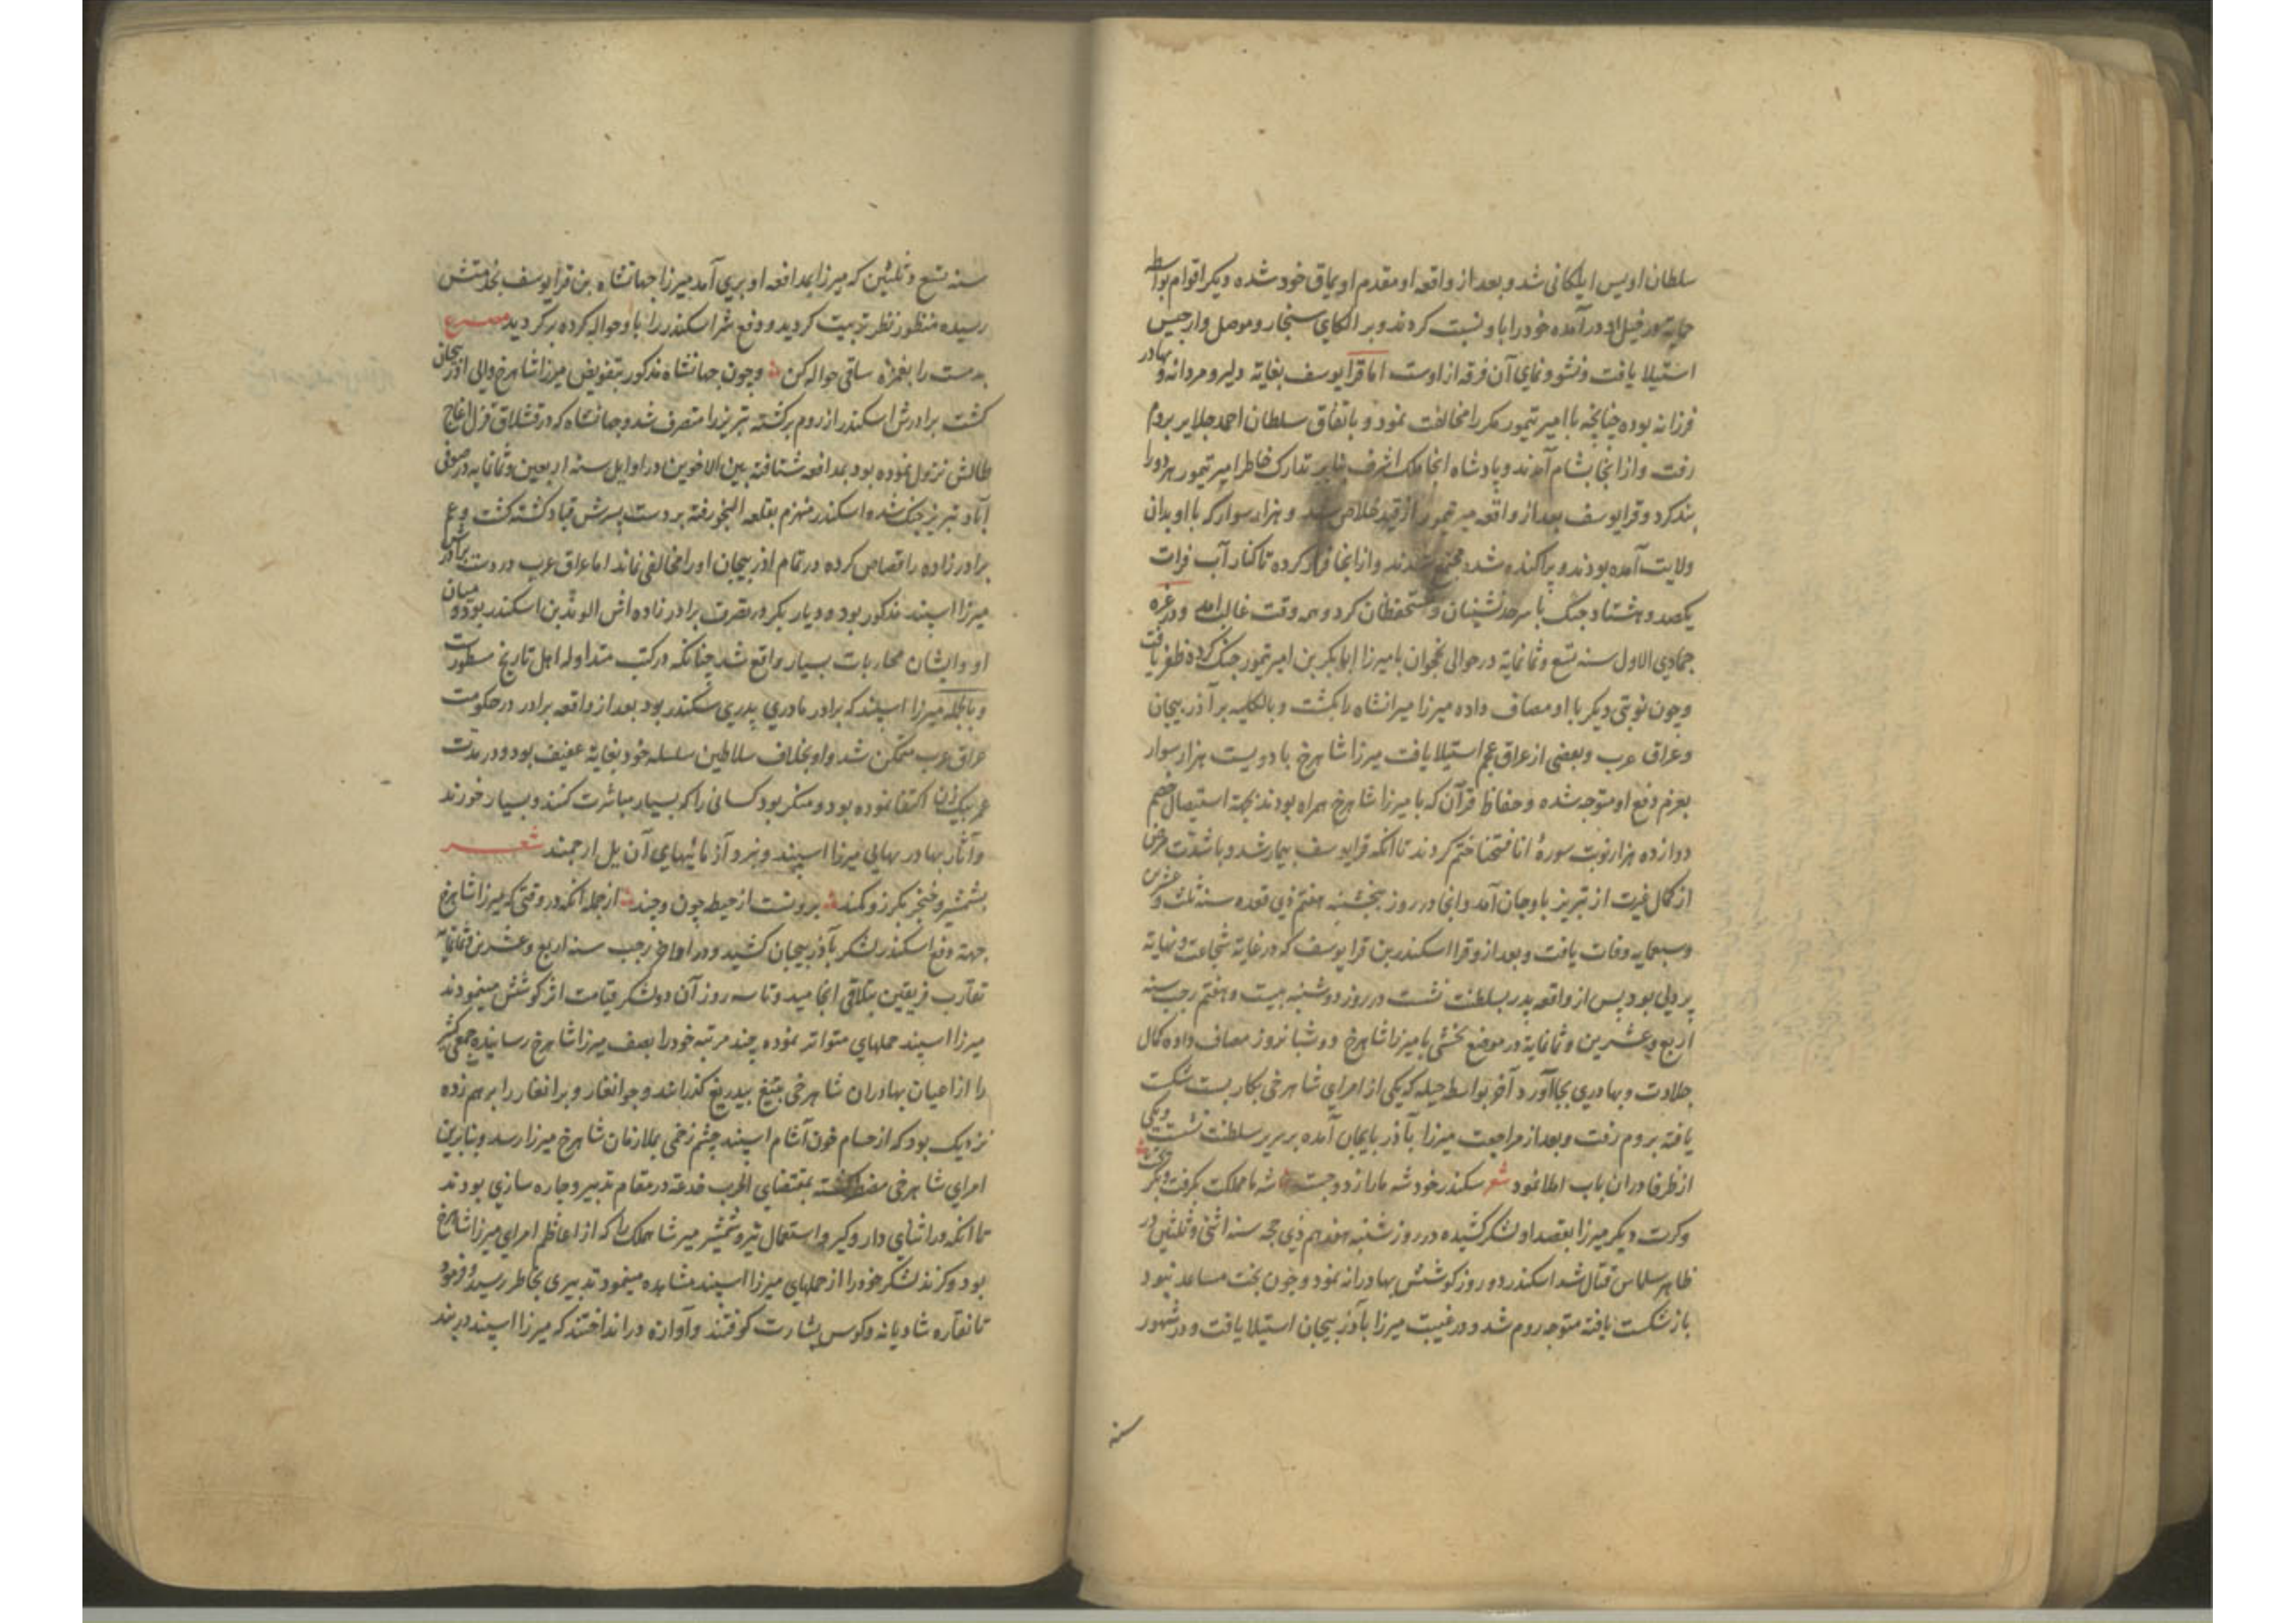 سلطان اویس ایلکانی شد و بعد از واقعه او مقدم اویماق خود شده دیکر اقوام بواسطه
در آمده خود را باو نسبت کردند و بر الکای سنجار و موصل و ارجیس
استیلا یافت و نشو و نمای آن فرقه از اوست اما قرا یوسف بغایة دلیر و مردانه و بهادر
فرزانه بوده چنانچه با امیر تیمور مکرر مخالفت نمود و باتفاق سلطان احمد جلایر بروم
رفت و از انجا بشام آمدند و پادشاه انجا ملک اشرف بنابر تدارک خاطر امیر تیمور هر دو را
بند کرد و قرا یوسف بعد از واقعه میر تیمور از قید خلاص شد و هزار سوار که با او بدان
ولایت آمده بودند و پراکنده شده مجتمع شدند و از انجا فرار کرده تا کنار آب فرات
یکصد و هشتاد جنک با سرحدنشینان و مستحفظان کرد و همه وقت غالب آمد و در غره
جمادی الاول سنه تسع و ثمانمایة در حوالی نخجوان با میرزا ابابکر بن امیر تیمور جنک کرده ظفر یافت
و چون نوبتی دیکر با او مصاف داده میرزا میرانشاه را بکشت و بالکلیه بر آذربیجان
و عراق عرب و بعضی از عراق عجم استیلا یافت میرزا شاهرخ با دویست هزار سوار
بعزم دفع او متوجه شده و حفاظ قرآن که با میرزا شاهرخ همراه بودند بجهة استیصال خصم
دوازده هزار نوبت سورهٔ انا فتحنا ختم کردند تا انکه قرا یوسف بیمار شد و با شدت مرض
از کمال غیرت از تبریز باوجان آمد و انجا در روز پنجشنبه هفتم ذی قعده سنه ثلث و عشرین
وسبعمایه وفات یافت و بعد ازو قرا اسکندر بن قرا یوسف که در غایة شجاعت و نهایة
پر دلی بود پس از واقعه پدر بسلطنت نشست در روز دوشنبه بیست و هفتم رجب سنه
اربع و عشرین و ثمانمایة در موضع بخشی با میرزا شاهرخ دو شبانروز مصاف داده کمال
جلادت و بهادری بجا آورد آخر بواسطه حیله که یکی از امرای شاهرخی بکار بست شکست
یافته بروم رفت و بعد از مراجعت میرزا بآذربایجان آمده بر سریر سلطنت نشست و یکی
از ظرفا دران باب املا نمود شعر سکندر خود شه ما را زد و جست شه ما مملکت بکرفت و بکریخت
و کرت دیکر میرزا بقصد او لشکر کشیده در روز شنبه هفدهم ذی حجه سنه اثنی و ثلثین در
ظاهر سلماس قتال شد اسکندر دو روز کوشش بهادرانه نمود و چون بخت مساعد نبود
باز شکست یافته متوجه روم شد و در غیبت میرزا بآذربیجان استیلا یافت و در شهور
سنه
سنه تسع و ثلثین که میرزا بمدافعه او بری آمد میرزا جهانشاه بن قرا یوسف بخدمتش
رسیده منظور نظر تربیت کردید و دفع شر اسکندر را باو حواله کرده برکردید مصرع
بدمست را بغمزه ساقی حواله کن و چون جهانشاه مذکور بتفویض میرزا شاهرخ والی اذربیجان
کشت برادرش اسکندر از روم برکشته تبریز را متصرف شد و جهانشاه که در قشلاق قزل اغاج
طالش نزول نموده بود بمدافعه شتافته بین الاخوین در اوایل سنه اربعین و ثمانمایه در صوفی
آباد تبریز جنک شده اسکندر منهزم بقلعه النجق رفته بر دست پسرش قباد کشته کشت و عم
برادرزاده را قصاص کرده در تمام اذربیجان او را مخالفی نماند اما عراق عرب در دست برادرش
میرزا اسپند مذکور بود و دیار بکر در تصرف برادرزاده اش الوند بن اسکندر بود و میان
او و ایشان محاربات بسیار واقع شد چنانکه در کتب متداوله اهل تاریخ مسطورست
و بالجمله میرزا اسپند که برادر مادری پدری سکندر بود بعد از واقعه برادر در حکومت
عراق عرب متمکن شد و او بخلاف سلاطین سلسله خود بغایة عفیف بود و در مدت
عمر بیک زن اکتفا نموده بود و منکر بود کسانی را که بسیار مباشرت کنند و بسیار خورند
و آثار بهادریهای میرزا اسپند و نبرد آزمائیهای آن یل ارجمند شعر
بشمشیر و خنجر بکرز و کمند برونست از حیطه چون و چند از جمله انکه در وقتی که میرزا شاهرخ
جهة دفع اسکندر لشکر بآذربیجان کشید و در اواخر رجب سنه اربع و عشرین و ثمانمایة
تقارب فریقین بتلاقی انجامید و تا سه روز آن دو لشکر قیامت اثر کوشش مینمودند
میرزا اسپند حملهای متواتر نموده چند مرتبه خود را بصف میرزا شاهرخ رسانیده جمعی کثیر
را از اعیان بهادران شاهرخی بتیغ بیدریغ کذرانند و جوانغار و برانغار را برهم زده
نزدیک بود که از حسام خون آشام اسپند چشم زخمی بملازمان شاهرخ میرزا رسد و بنابرین
امرای شاهرخی مضطر کشته بمقتضای الحرب خدعة در مقام تدبیر و چاره سازی بودند
تا انکه در اثنای دار و کیر و استعمال تیر و شمشیر میر شاهملک که از اعاظم امرای میرزا شاهرخ
بود و کزند لشکر خود را از حملهای میرزا اسپند مشاهده مینمود تدبیری بخاطر رسید و فرمود
تا نقاره شادیانه و کوس بشارت کوفتند و آوازه در انداختند که میرزا اسپند در بند